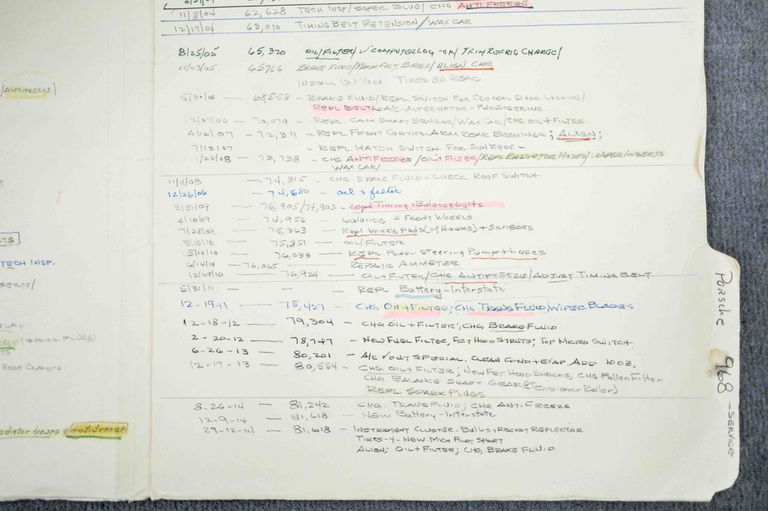 ANTIFREEZE
TECH INSP.
radiator hoses antifreeze
11/8/04 62,628 TECH INSP/ SUPER BLUE/ CHG ANTIFREEZE
12/17/04 63,010 TIMING BELT RETENSION/WAX CAR
8/25/05 65,320 OIL/FILTER/ TRIM REFRIG CHARGE/
11/03/05 65766 BRAKE FLUID/ ALIGN CAR
INSTALL TIRES ON REAR
5/30/06 — 68,558 — BRAKE FLUID/REPL SWITCH FOR CENTRAL DOOR LOCKING/
REPL BELTS A/C-ALTERNATOR-PWRSTEERING
12/07/06 — 70,079 — REPL CAM SHAFT SENSOR/WAX CAR/CHG OIL+FILTER
4/16/07 — 72,311 — REPL FRONT CONTROL ARM REAR BUSHINGS; ALIGN;
7/13/07 — REPL HATCH SWITCH FOR SUNROOF —
1/28/08 — 73,738 — CHG ANTIFREEZE/OIL+FILTER/REPL RADIATOR HOSES/WIPER INSERTS
WAX CAR/
11/11/08 — 74,315 — CHG BRAKE FLUID-CHECK ROOF SWITCH
12/26/08 — 74,680 — oil + filter
3/31/09 — 76,905/74,905 — repl Timing + Balance belts
4/10/09 — 74,956 — balance 2 FRONT WHEELS
7/28/09 — 75,363 — Repl brake pads (Hawks) + Sensors
3/10/10 — 75,851 — OIL/FILTER
5/10/10 — 76,033 — REPL Power Steering Pump + hoses
6/16/10 — 76,065 REPAIR AMMETER
12/29/10 — 76,924 — OIL+FILTER/CHG ANTIFREEZE/ADJUST TIMING BELT
5/31/11 — — — REPL Battery-Interstate
12-19-11 — 78,427 — CHG OIL+FILTER; CHG TRANS FLUID/WIPER BLADES
12-18-12 — 79,304 — CHG OIL+FILTER; CHG BRAKE FLUID
2-20-12 — 78,747 — NEW FUEL FILTER, FRT HOOD STRUTS; TOP MICRO SWITCH
6-26-13 — 80,201 — A/C SPECIAL. CLEAN COND+EVAP ADD 10OZ,
12-17-13 — 80,554 — CHG OIL+FILTER; NEW FRT HOOD SHOCKS, CHG POLLEN FILTER
CHG BALANCE SHAFT GEAR (TENSIONER ROLLER)
REPL SPARK PLUGS
8-26-14 — 81,242 CHG. TRANS FLUID; CHG ANTI-FREEZE
12-9-14 — 81,618 — NEW Battery-Interstate
29-12-14 — 81,618 — INSTRUMENT CLUSTER. BULBS+ REFLECTOR
TIRES-4-NEW MICH PILOT SPORT
ALIGN; OIL+FILTER; CHG BRAKE FLUID.
PORSCHE 968 — SERVICE